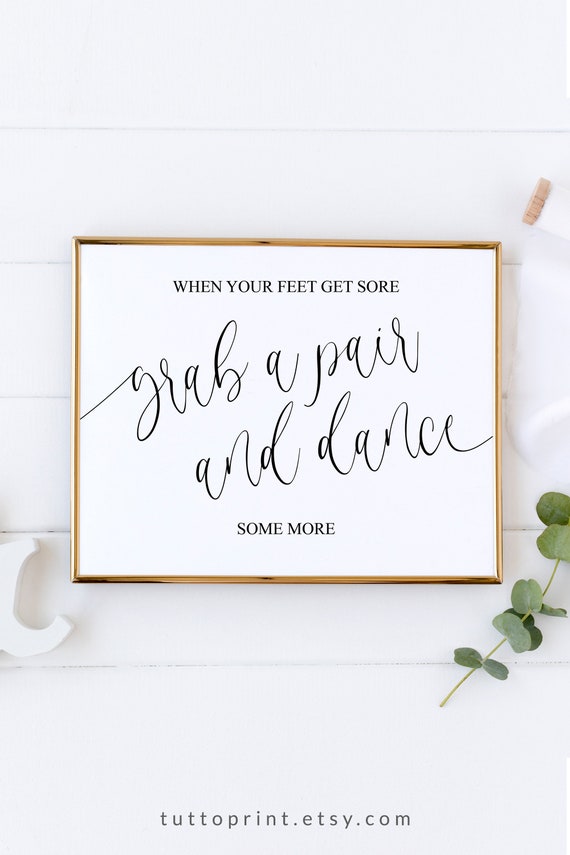 WHEN YOUR FEET GET SORE
grab a pair
and dance
SOME MORE
tuttoprint.etsy.com